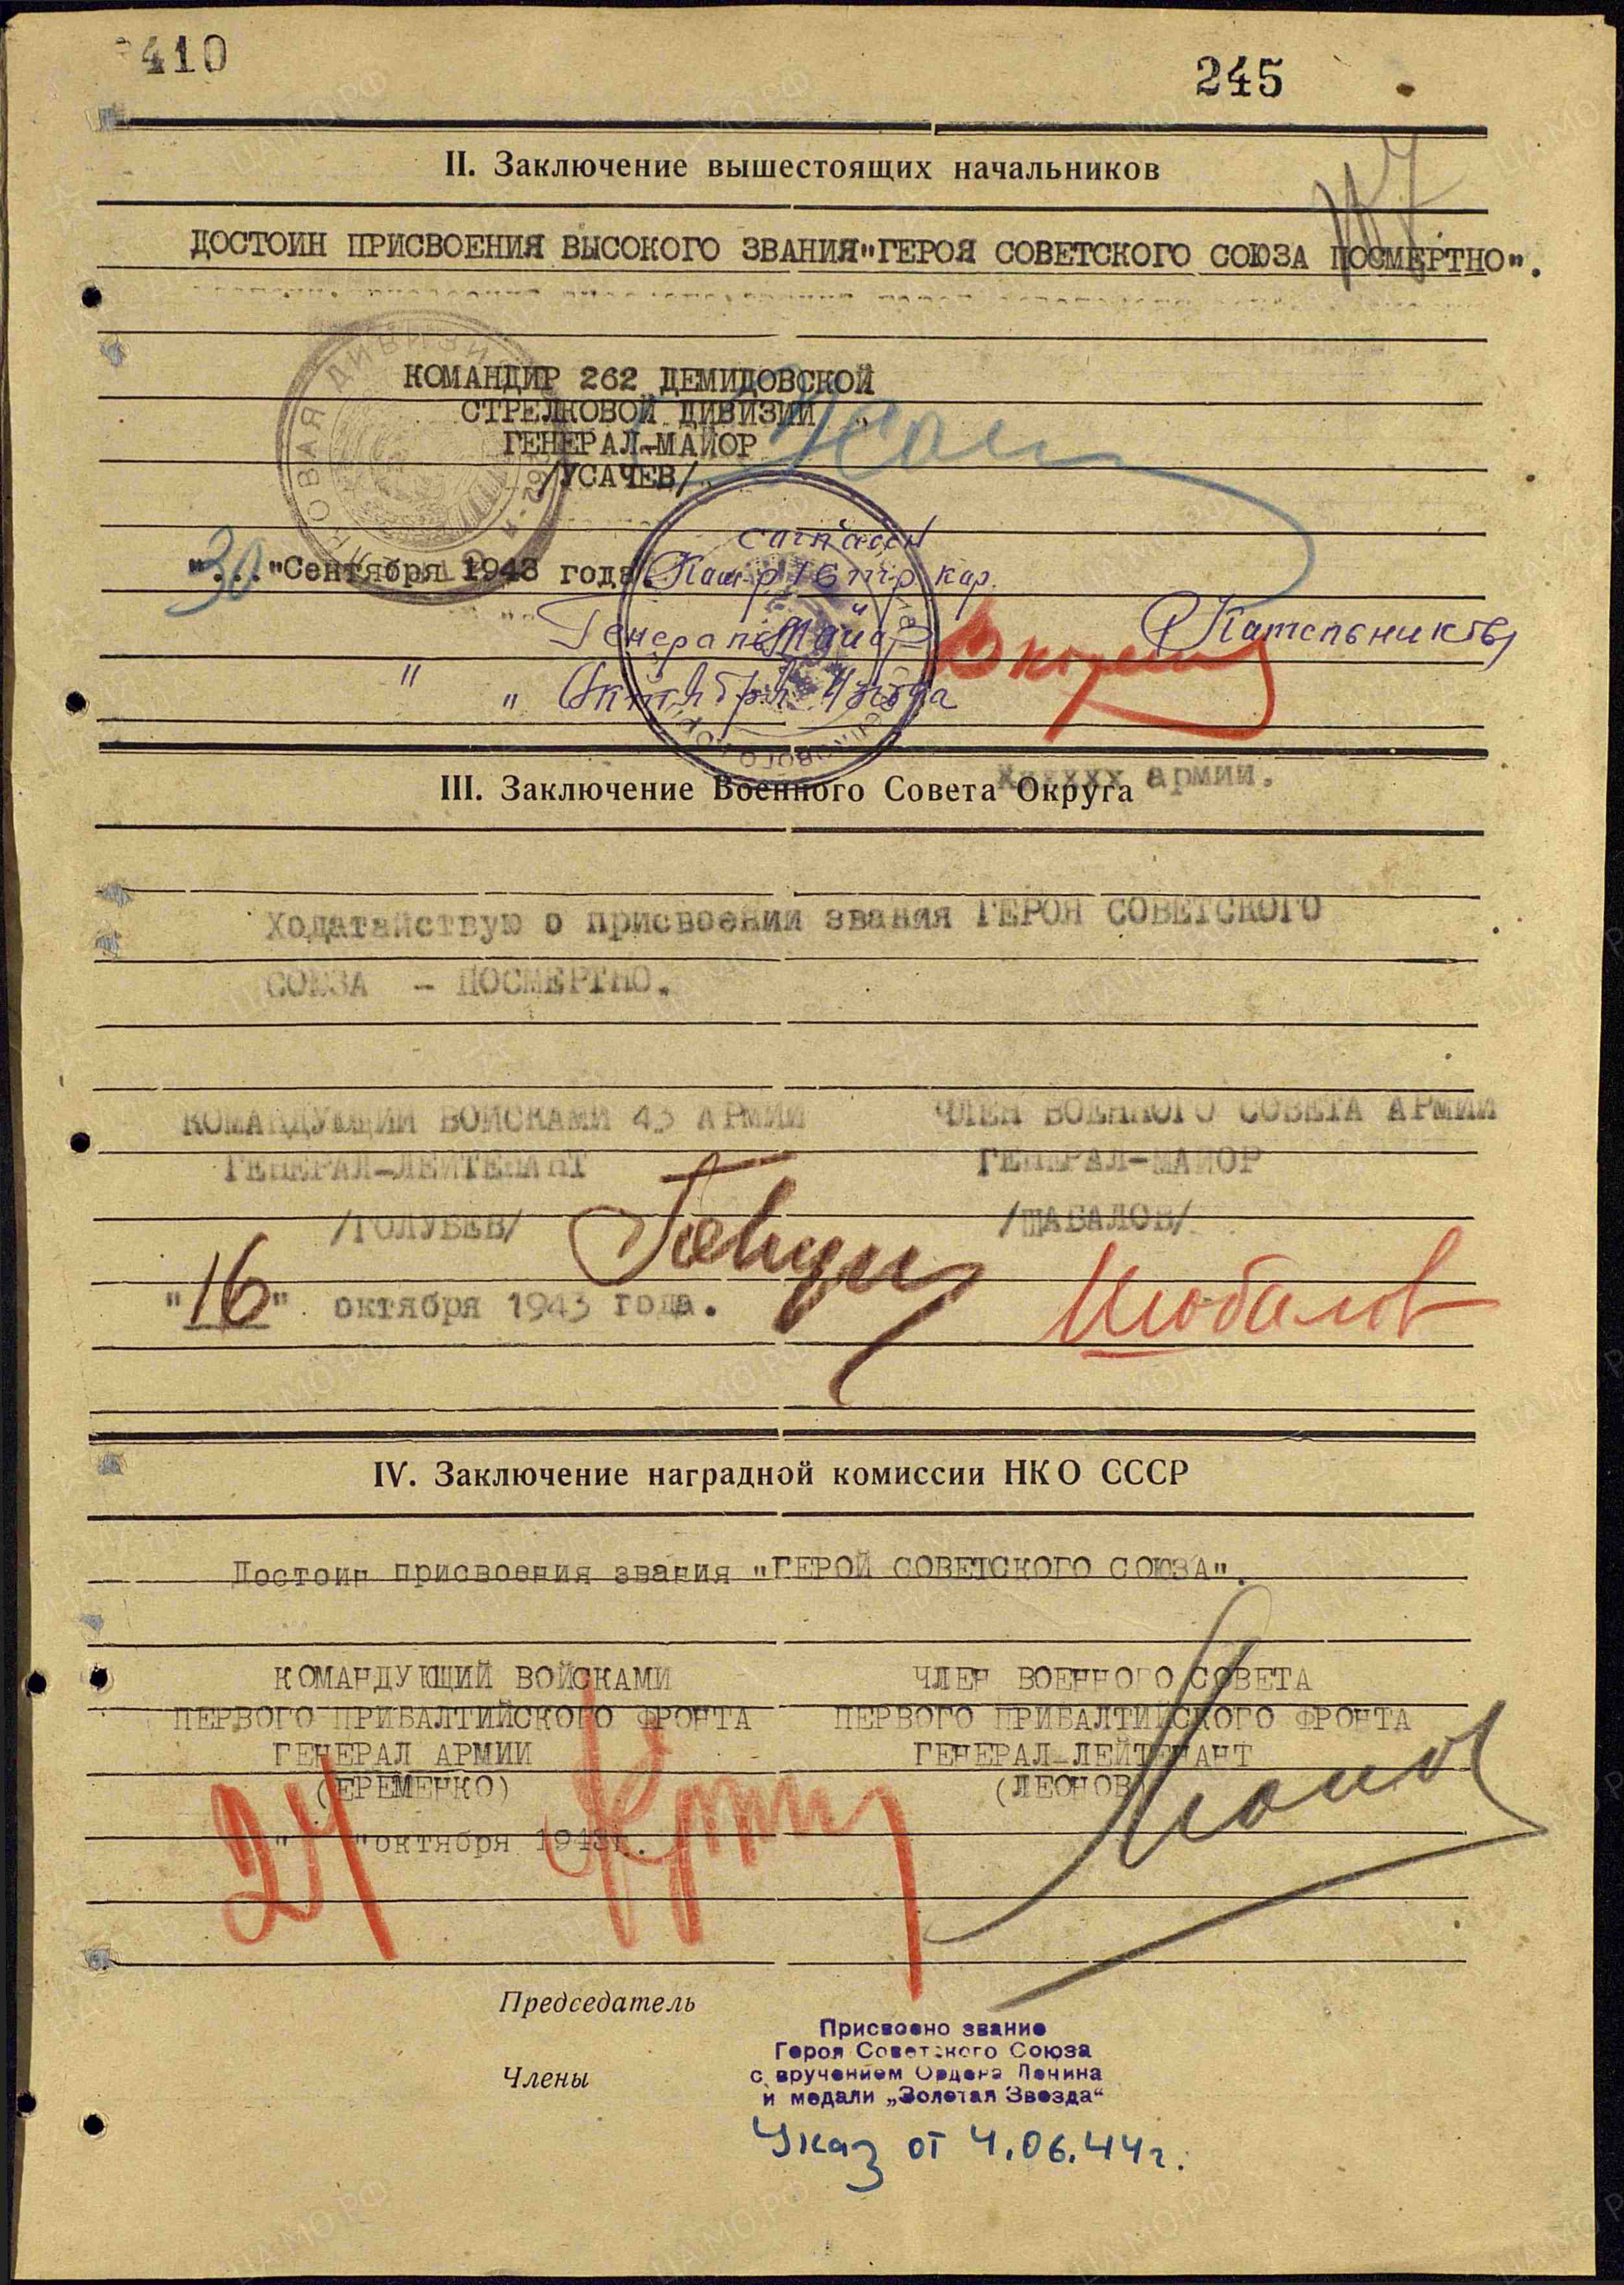 410
245
II. Заключение вышестоящих начальников
ДОСТОИН ПРИСВОЕНИЯ ВЫСОКОГО ЗВАНИЯ "ГЕРОЯ СОВЕТСКОГО СОЮЗА ПОСМЕРТНО".
КОМАНДИР 262 ДЕМИДОВСКОЙ
СТРЕЛКОВОЙ ДИВИЗИИ
ГЕНЕРАЛ-МАЙОР
/УСАЧЕВ/
согласен
"30" Сентября 1943 года.
Ком-р стр кор.
Генерал Майор
" " Октября 43 года
III. Заключение Военного Совета Округа
хххххх армии.
Ходатайствую о присвоении звания ГЕРОЯ СОВЕТСКОГО
СОЮЗА - ПОСМЕРТНО.
КОМАНДУЮЩИЙ ВОЙСКАМИ 43 АРМИИ
ЧЛЕН ВОЕННОГО СОВЕТА АРМИИ
ГЕНЕРАЛ-ЛЕЙТЕНАНТ
ГЕНЕРАЛ-МАЙОР
/ГОЛУБЕВ/
/ШАБАЛОВ/
"16" октября 1943 года.
Шабалов
IV. Заключение наградной комиссии НКО СССР
Достоин присвоения звания "ГЕРОЙ СОВЕТСКОГО СОЮЗА".
КОМАНДУЮЩИЙ ВОЙСКАМИ
ПЕРВОГО ПРИБАЛТИЙСКОГО ФРОНТА
ГЕНЕРАЛ АРМИИ
(ЕРЕМЕНКО)
ЧЛЕН ВОЕННОГО СОВЕТА
ПЕРВОГО ПРИБАЛТИЙСКОГО ФРОНТА
ГЕНЕРАЛ-ЛЕЙТЕНАНТ
(ЛЕОНОВ)
24
" " октября 1943г.
Председатель
Члены
Присвоено звание
Героя Советского Союза
с вручением Ордена Ленина
и медали „Золотая Звезда“
Указ от 4.06.44г.